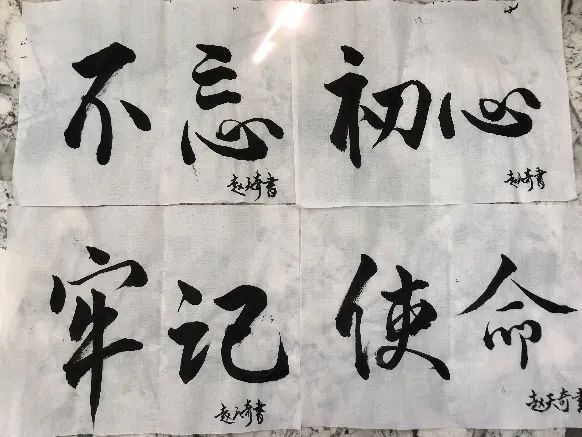 不忘
赵天奇书
初心
赵天奇书
牢记
赵天奇书
使命
赵天奇书